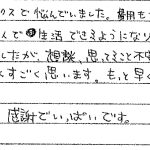 クスで悩んでいました。費用も
んで生活できるようになり
したが、相談、思ってること不安
んすごく思います。もっと早く
感謝でいっぱいです。